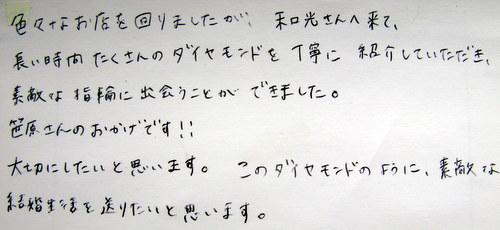 色々なお店を回りましたが、和光さんへ来て、
長い時間たくさんのダイヤモンドを丁寧に紹介していただき、
素敵な指輪に出会うことができました。
笹原さんのおかげです!!
大切にしたいと思います。このダイヤモンドのように、素敵な
結婚生活を送りたいと思います。